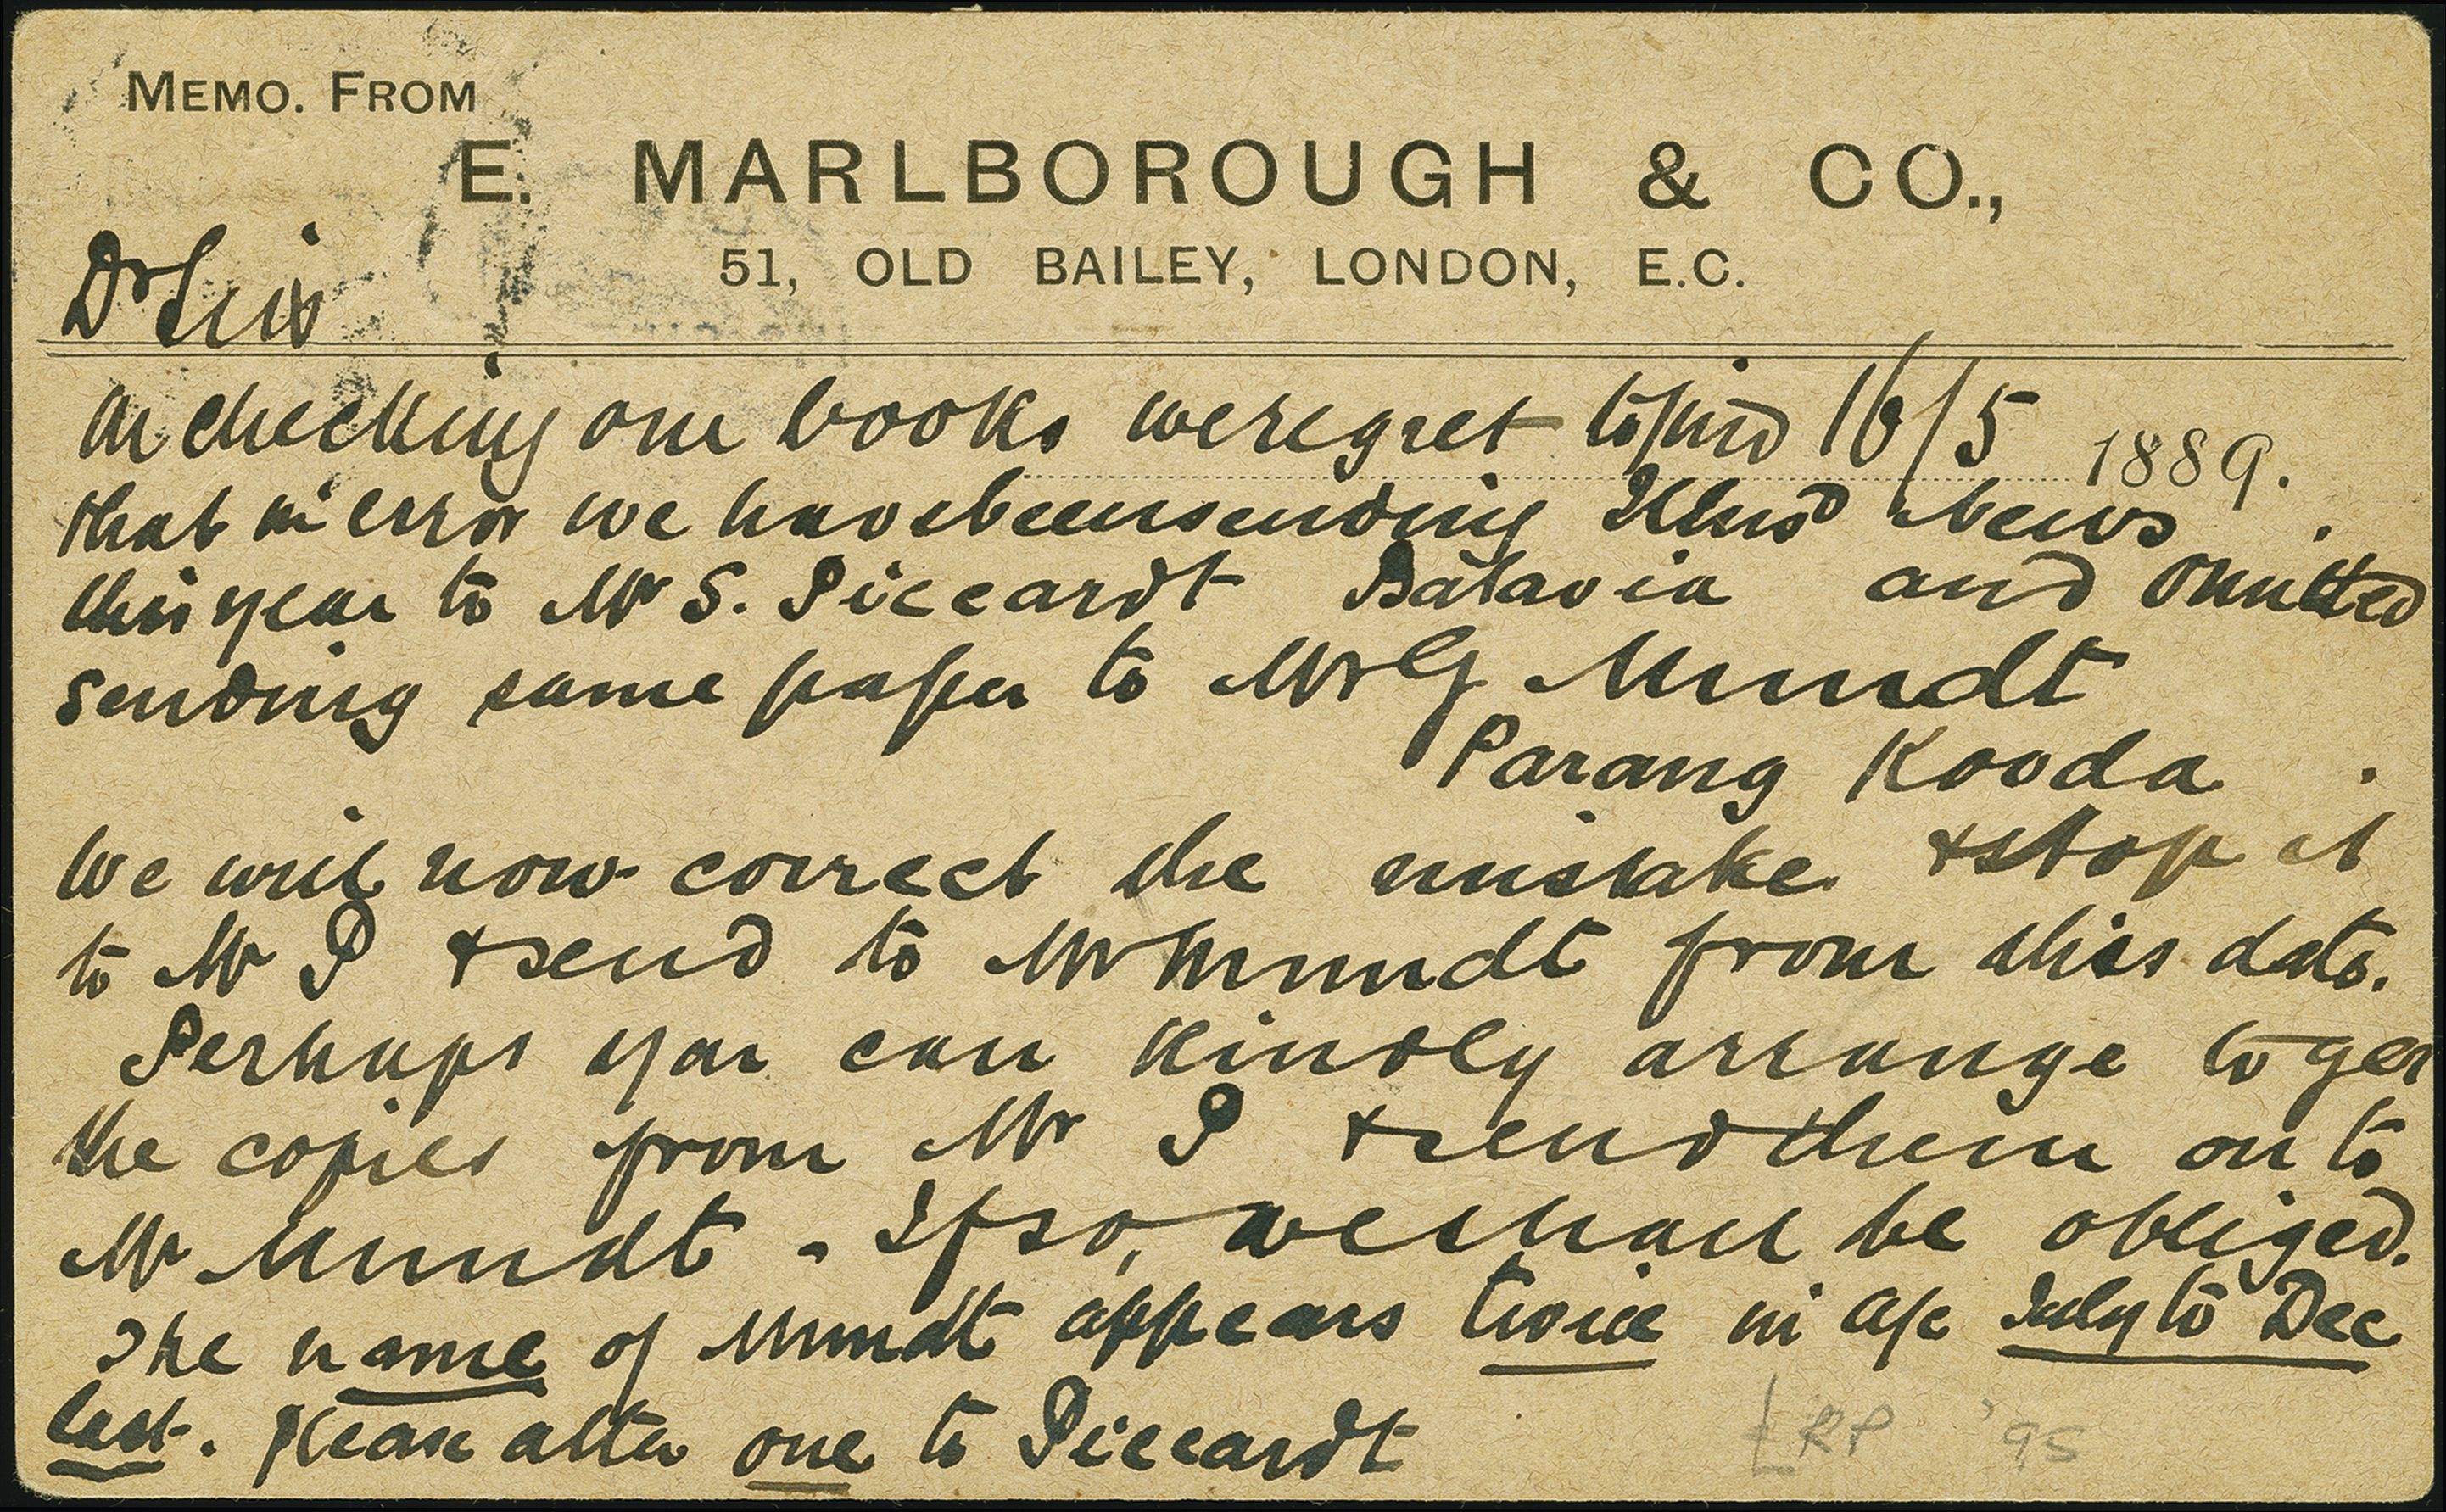 MEMO. FROM
E. MARLBOROUGH & CO.,
51, OLD BAILEY, LONDON, E.C.
Dr Sir
In checking our books we regret to find 16/5 1889.
that in error we have been sending Illusd News
this year to Mr S. Piccardt Batavia and omitted
sending same paper to Mr G Mundt
Parang Kooda.
We will now correct the mistake & stop it
to Mr P & send to Mr Mundt from this date.
Perhaps you can kindly arrange to get
the copies from Mr P & send them on to
Mr Mundt. If so, we shall be obliged.
The name of Mundt appears twice in a/c July to Dec
last. Please alter one to Piccardt
RP '95